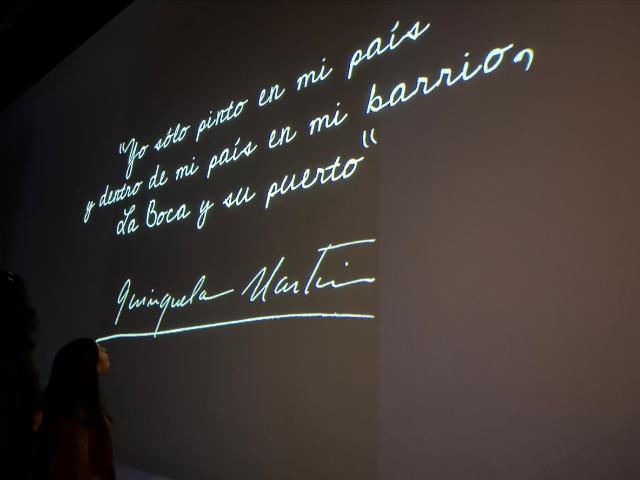 "Yo sólo pinto en mi país
y dentro de mi país en mi barrio,
La Boca y su puerto"
Quinquela Martin